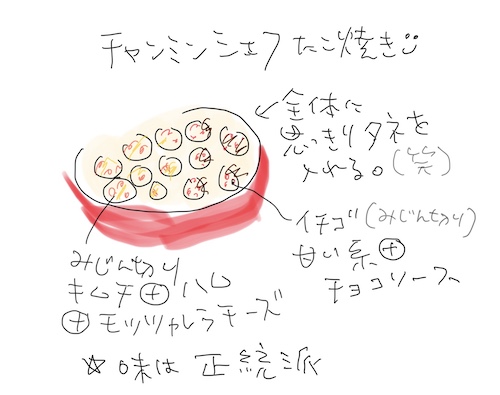 チャンミンシェフ たこ焼き
全体に
思っきりタネを
入れる。(笑)
イチゴ(みじん切り)
甘い系⊕
チョコソース
みじん切り
キムチ⊕ハム
⊕モッツァレラチーズ
☆味は 正統派